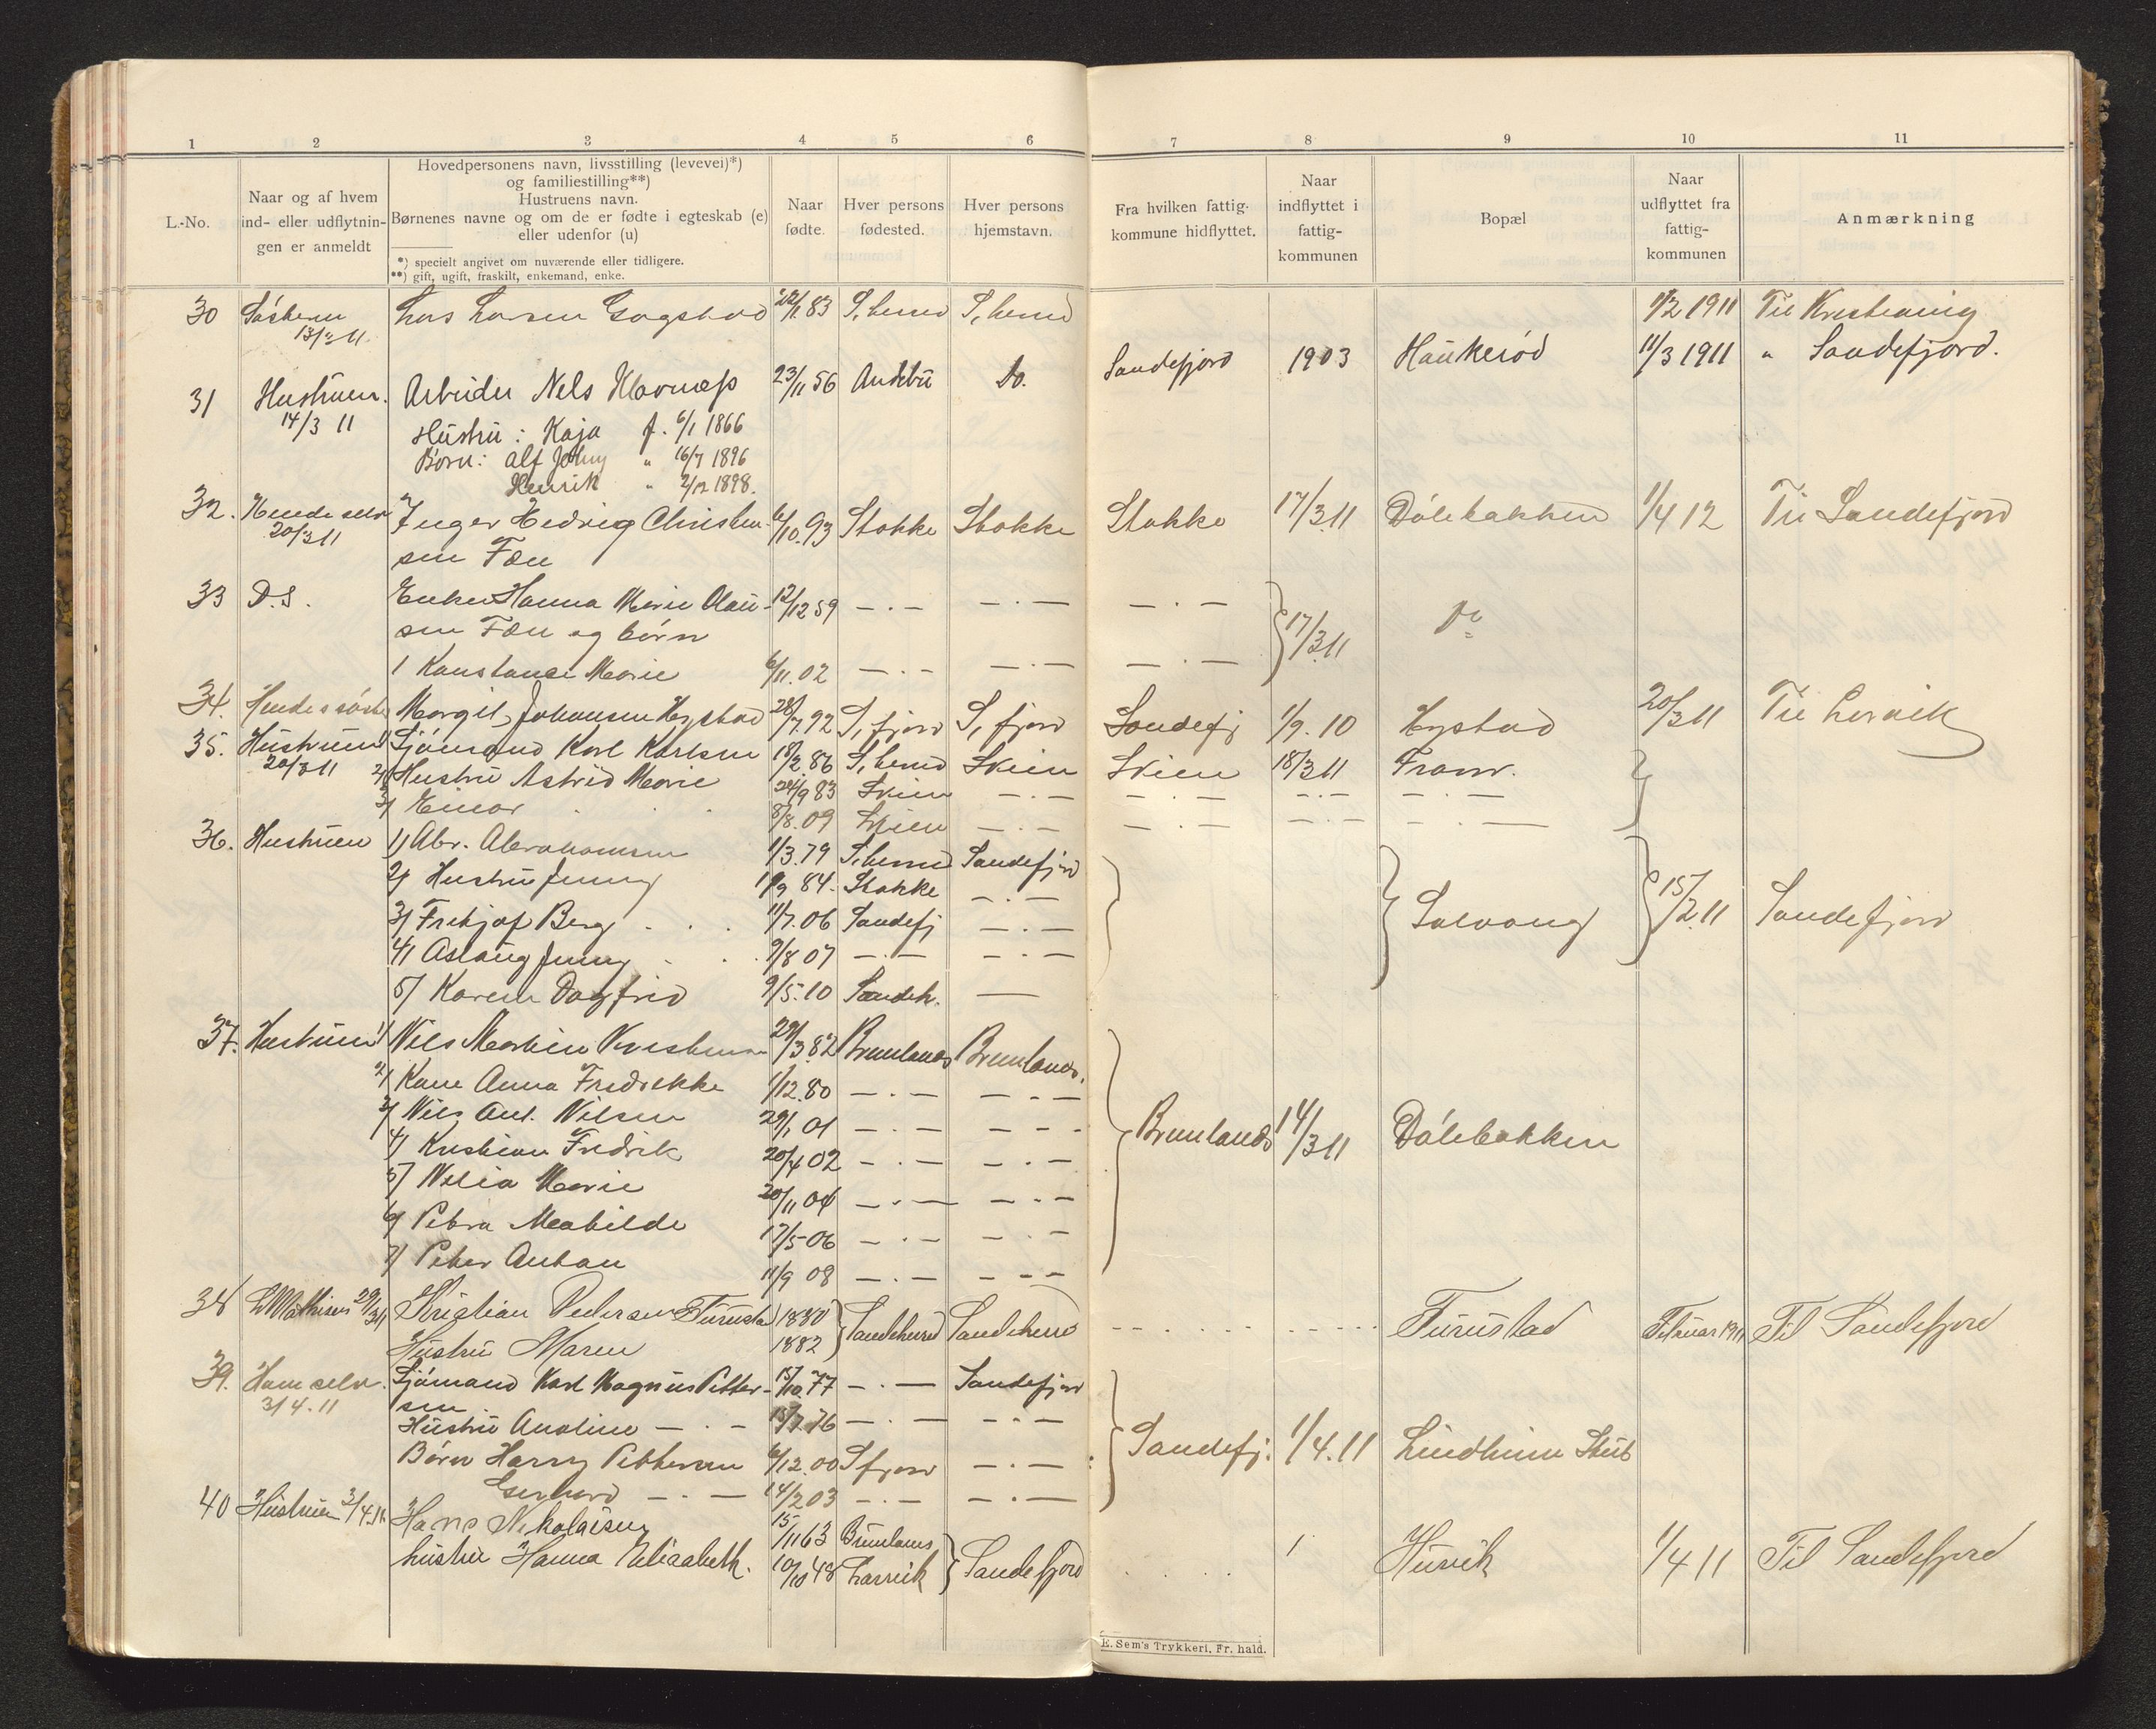 1 2 3 4 5 6 7 8 9 10 11
L.-No.
Naar og af hvem
ind- eller udflytnin-
gen er anmeldt
Hovedpersonens navn, livsstilling (levevei)*)
og familiestilling**)
Hustruens navn.
Børnenes navne og om de er fødte i egteskab (e)
eller udenfor (u)
*) specielt angivet om nuværende eller tidligere.
**) gift, ugift, fraskilt, enkemand, enke.
Naar
fødte.
Hver persons
fødested.
Hver persons
hjemstavn.
Fra hvilken fattig-
kommune hidflyttet.
Naar
indflyttet i
fattig-
kommunen
Bopæl
Naar
udflyttet fra
fattig-
kommunen
Anmærkning
30 Søsteren Lars Larsen Gogstad 22/1 83 S,herred S,herred 1/2 1911 Til Kristiania
13/3 11
31 Hustruen. Arbeider Nels Klavnæss 23/11 56 Andebu Do. Sandefjord 1903 Haukerød 11/3 1911 " Sandefjord.
14/3 11 Hustru : Kaja f. 6/1 1866
Børn: Alf Johny " 16/7 1896
Henrik " 2/12 1898.
32. Hende selv Inger Hedvig Christen- 6/10.93 Stokke Stokke Stokke 17/3.11 Dølebakken 1/4 12 Til Sandefjord
20/3 11 sen Fæn
33 D.S. Enke Hanna Marie Olau- 12/12 59 — . — — . — — . — 17/3.11 Do
sen Fæn og børn
1 Konstance Marie 6/11.02 — . — — . — — . —
34. Hendes søster Margit Johansen Hystad 28/7.92 S,fjord S,fjord Sandefj 1/9.10 Hystad 20/3 11 Til Larvik
35. Hustruen 1) Sjømand Karl Karlsen 18/2.86 S,herred Skien Skien 18/3 11 Fram.
20/3 11 2) Hustru Astrid Marie 24/9 83 Skien — . — — . — — . — — . —
3) Einar 8/8.09 Skien — . — — . — — . — — . —
36. Hustruen 1) Abr. Abrahamsen 1/3.79 S,herred Sandefjord
2) Hustru Jenny 19/9 84. Stokke — . —
3) Fritjof Berg . . . 11/7.06 Sandefj — . — Solvang 15/2.11 Sandefjord
4) Aslaug Jenny . . . 9/8 07 — . — — . —
5) Karen Dagfrid 9/5.10 Sandeh. —
37. Hustruen 1) Nils Martin Kristensen 29/3.82 Brunlanes Brunlanes.
2) Kone Anna Fredrikke 1/12.80 — . — — . —
3) Nils Ant. Nilsen 29/1 01 — . — — . —
4) Kristian Fredrik 20/4 02 — . — — . — Brunlanes 14/3 11 Dølebakken
5) Nilia Marie 20/11 04 — . — — . —
6) Petra Mathilde 17/5 06 — . — — . —
7) Peter Anton 11/9 08 — . — — . —
38 L Mathisen 29/3 11 Kristian Pedersen Furustad 1880 Sandeherred Sandeherred Furustad Februar 1911 Til Sandefjord
Hustru Maren 1882
39. Ham selv. Sjømand Karl Magnus Petter- 15/10.77 — . — Sandefjord
3/4.11 sen
Hustru Anoline — . — 15/7.76 — . — — . —
Børn Harry Pettersen 6/12.00 Sfjord — . — Sandefj. 1/4.11 Lindheim Skub
Gerhard — . — 14/2 03 — . — — . —
40 Hustruen 3/4.11 Hans Nikolaisen 15/11 63 Brunlanes Husvik 1/4 11 Til Sandefjord
hustru Hanna Elisabeth. 10/10 48 Larvik Sandefjord
E. Sem's Trykkeri, Fr. hald.